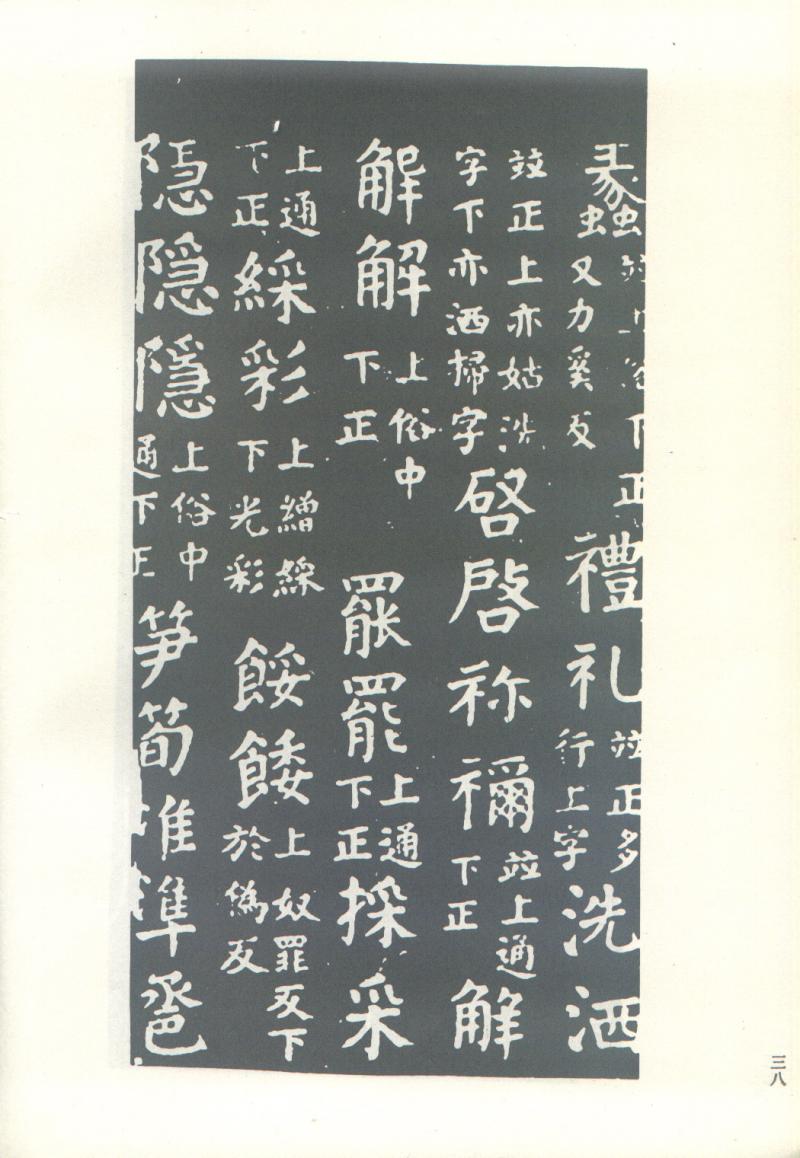 蠡並上俗下正又力奚反禮礼並正多行上字洗洒
並正上亦姑洗字下亦洒掃字啓啓祢禰並上通下正解
觧解上俗中下正罷罷上通下正採采
上通下正綵彩上繒綵下光彩餒餧上奴罪反下於偽反
隐隠隱上俗中通下正笋筍准準卺
三八